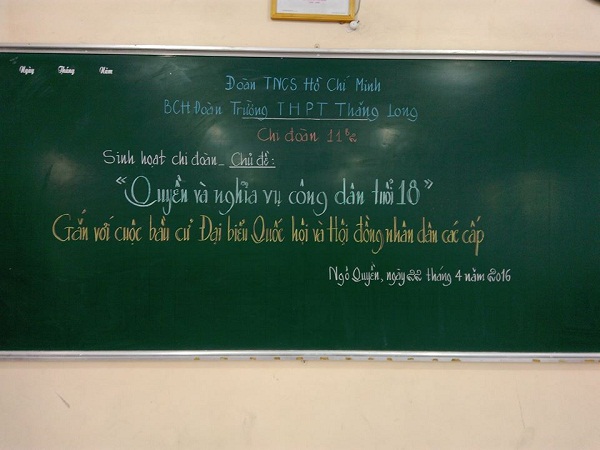 Ngày Tháng Năm
Đoàn TNCS Hồ Chí Minh
BCH Đoàn Trường THPT Thăng Long
Chi đoàn 11
Sinh hoạt chi đoàn_ Chủ đề:
“Quyền và nghĩa vụ công dân tuổi 18”
Gắn với cuộc bầu cử Đại biểu Quốc hội và Hội đồng nhân dân các cấp
Ngô Quyền, ngày 22 tháng 4 năm 2016